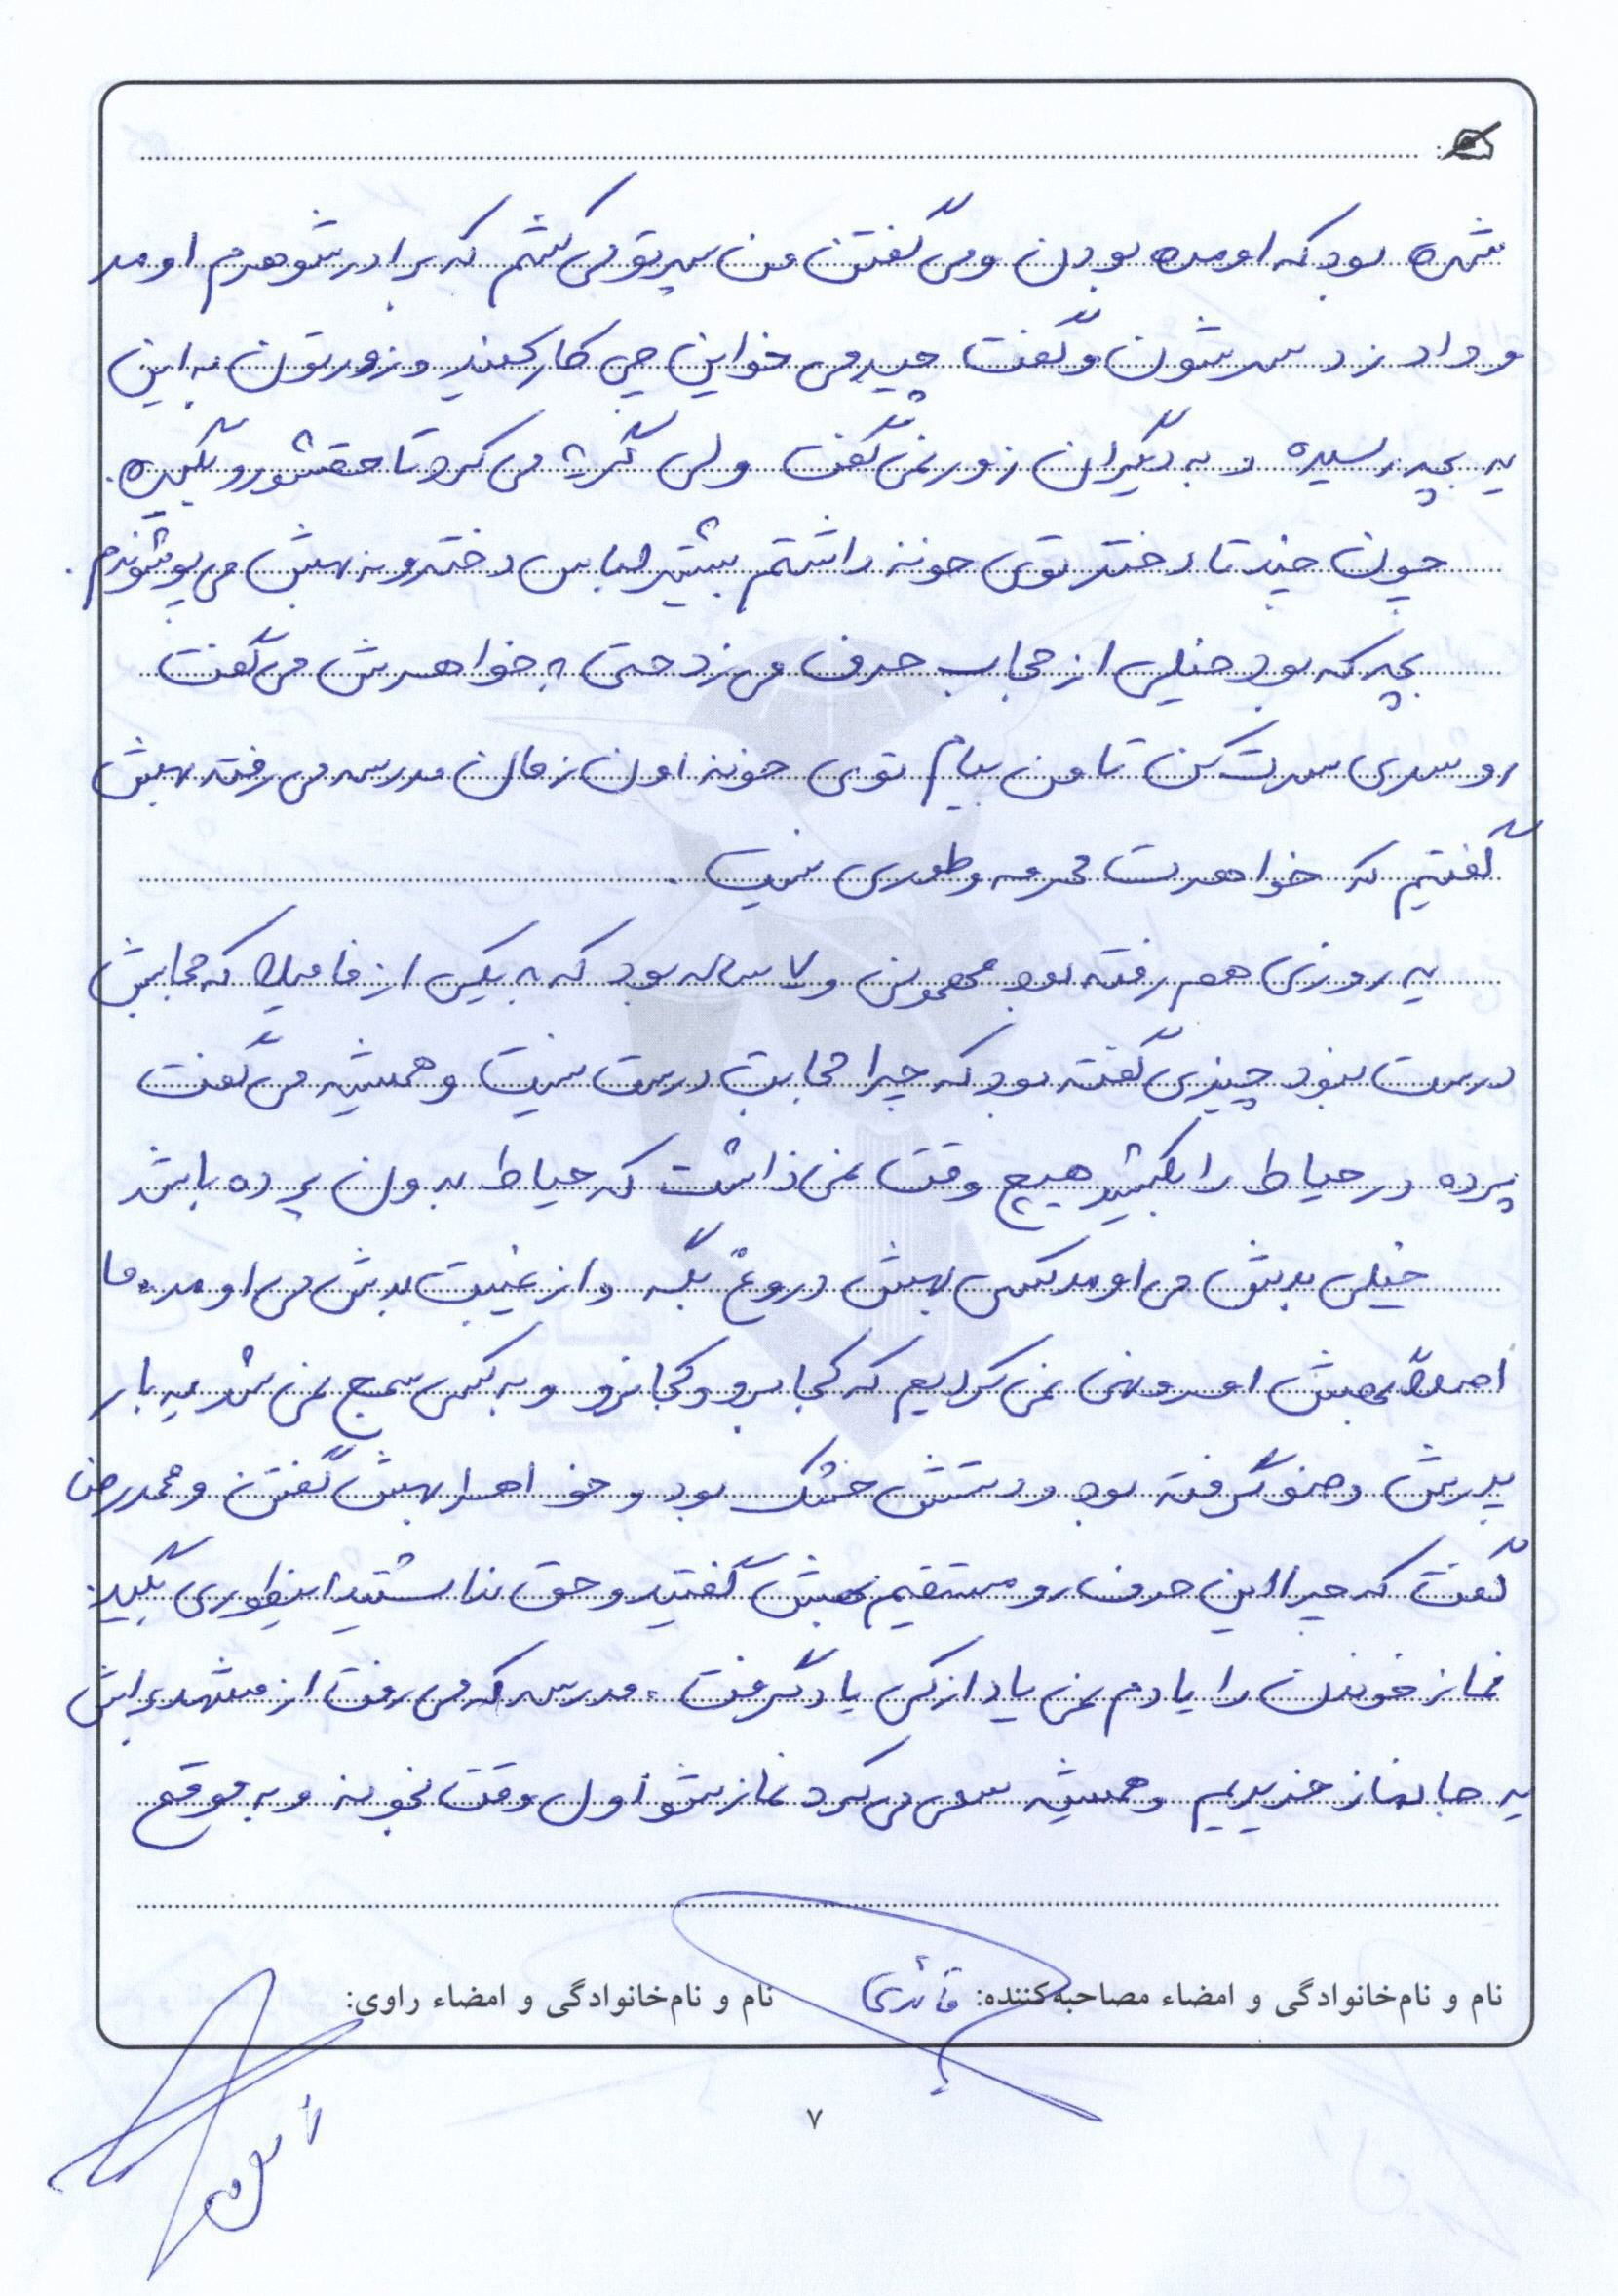 شده بود که اومده بودن و می گفتن من سر تو می کشم که برادر شوهرم اومد
و داد زد سرشون و گفت چیه می خواین چی کار کنید و زورتون به این
یه بچه رسیده و به دیگران زور نمی گفت ولی می کرد تا حقشو رو بگیره.
چون چند تا دختر توی خونه داشتم بیشتر لباس دخترونه بهش می پوشوندم.
بچه که بود خیلی از حجاب حرف می زد حتی به خواهرش می گفت
روسری سرت کن تا من بیام توی خونه اون زمان مدرسه می رفت بهش
گفتیم که خواهرت محرمه و طوری نیست.
یه روزی هم رفته بود مهمونی و ۷ ساله بود که به یکی از فامیلا که حجابش
درست نبود چیزی گفته بود که چرا حجابت درست نیست و همیشه می گفت
پرده در حیاط را بکشید هیچ وقت نمی ذاشت که حیاط بدون پرده باشد
خیلی بدش می اومد کسی بهش دروغ بگه و از غیبت بدش می اومد. ما
اصلاً بهش امر و نهی نمی کردیم که کجا برو و کجا نرو و به کسی سمج نمی شد یه بار
پدرش وضو گرفته بود و دستش خشک بود و خواهرا بهش گفتن و محمدرضا
گفت که چرا این حرف رو مستقیم بهش گفتید و حق نداشتید اینطوری بگید.
نماز خوندن را یادم نمی یاد از کی یاد گرفت. مدرسه که می رفت از مشهد براش
یه جانماز خریدیم و همیشه سعی می کرد نمازشو اول وقت بخونه و به موقع
نام و نام‌خانوادگی و امضاء مصاحبه‌کننده: نام و نام‌خانوادگی و امضاء راوی:
۷